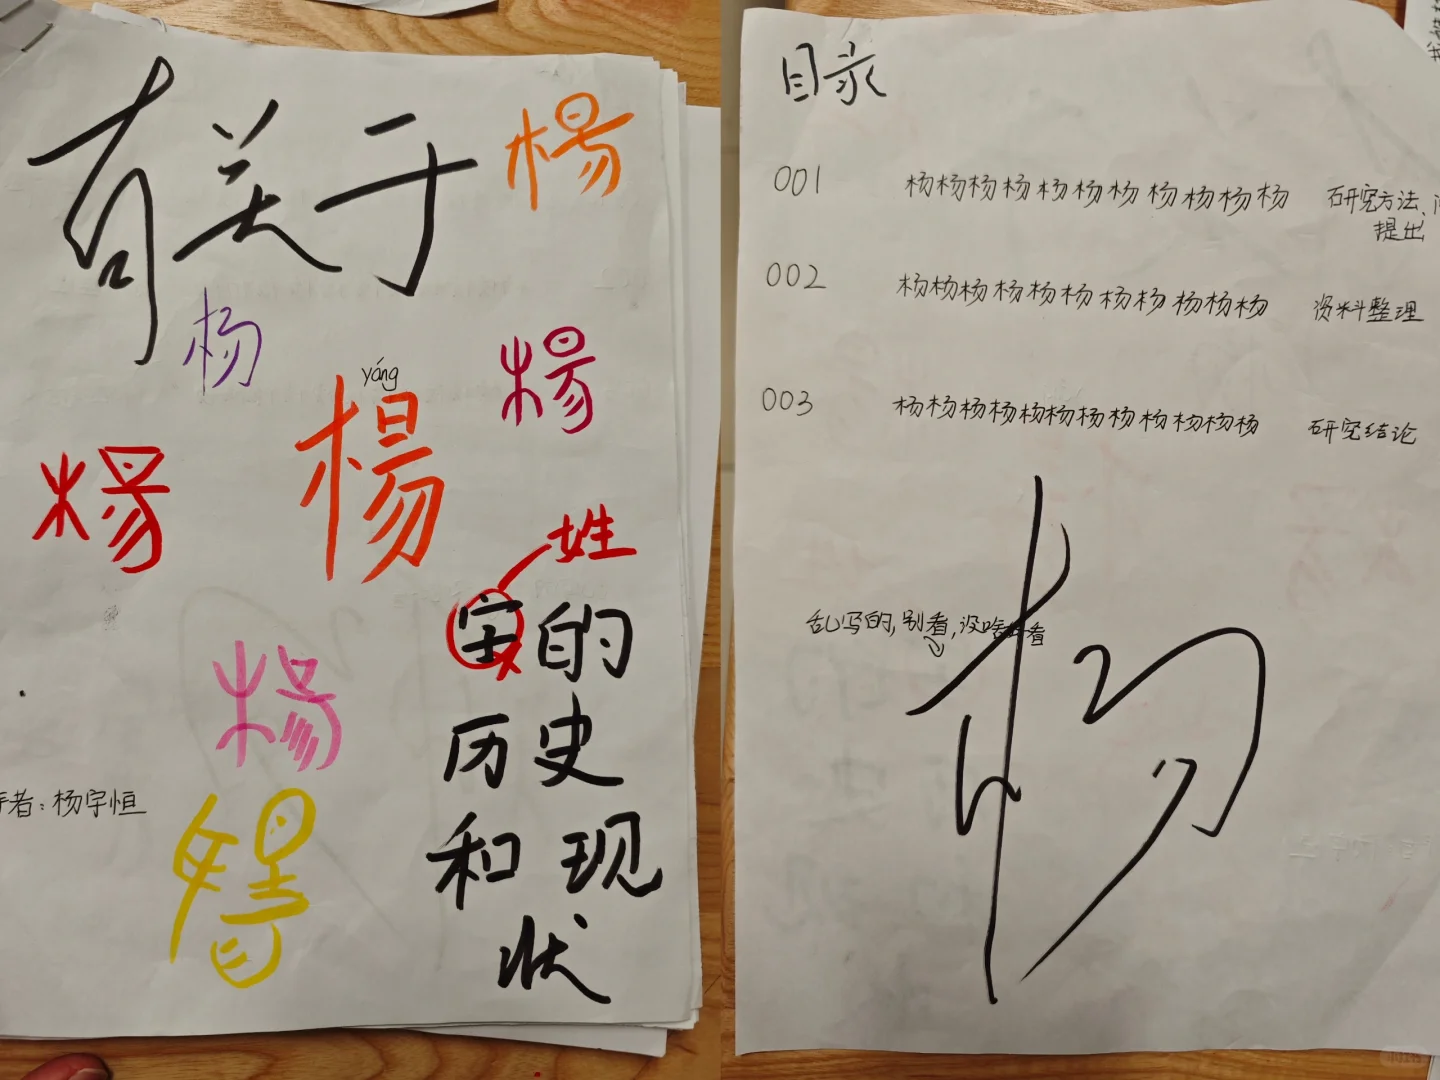 有关于
楊
杨
yáng
楊
楊
楊
姓
字的
历史
和现
状
楊
者：杨宇恒
目录
001 杨杨杨杨杨杨杨杨杨杨杨 研究方法、
提出
002 杨杨杨杨杨杨杨杨杨杨杨 资料整理
003 杨杨杨杨杨杨杨杨杨杨杨杨 研究结论
乱写的，别看，没啥好看
杨